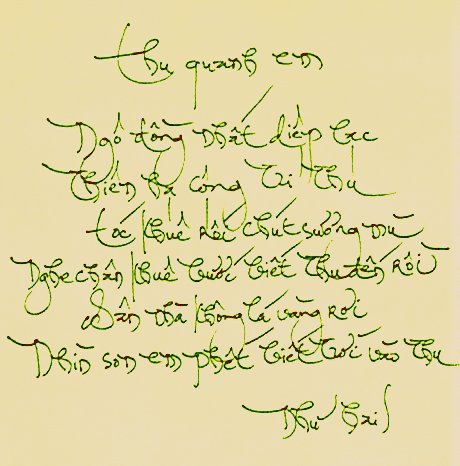 thu quanh em
Ngô đồng nhất diệp lạc
Thiên hạ cộng tri thu
tóc khuê rối chút sương mù
Nghe chân khuê bước biết thu đến rồi
sân nhà không lá vàng rơi
Nhìn son em phết biết trời vào thu
Như